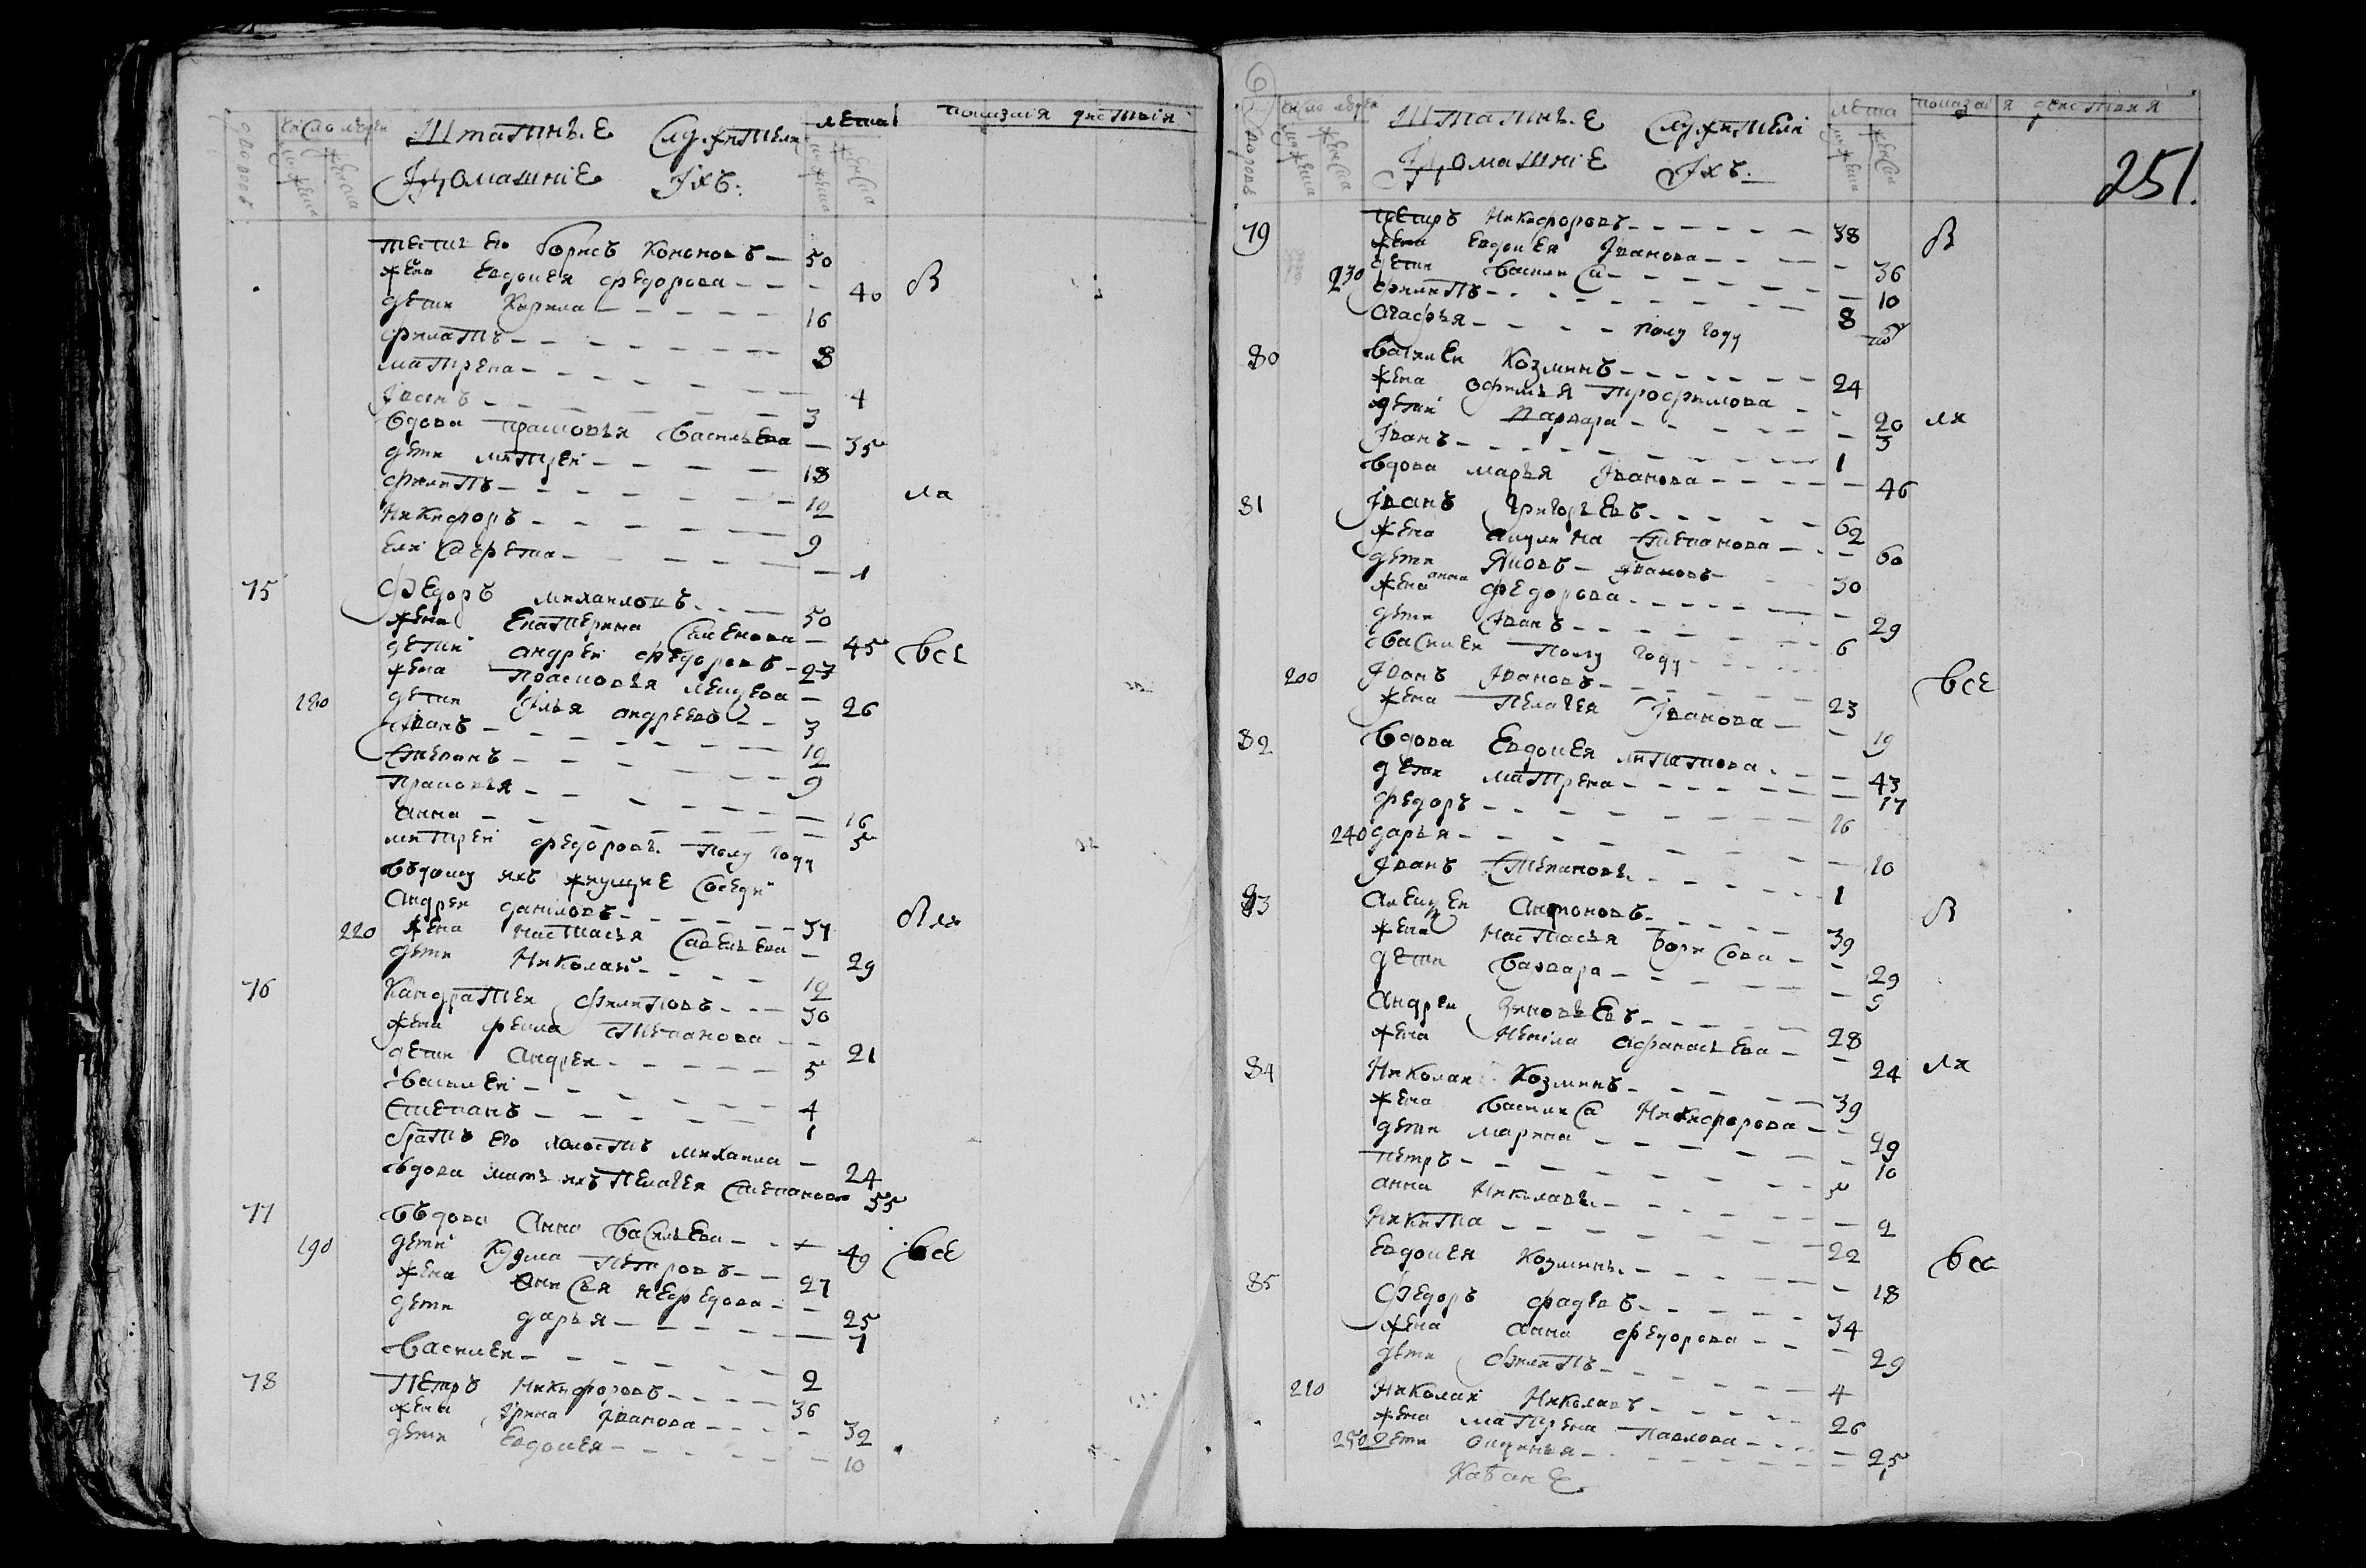 дворовъ
число людей
мужеска
женска
Штатные Служители
И домашнiе Ихъ.
лета
мужеска
женска
показанiя действiя
тесть Его борисъ Кононовъ — 50
жена Евдокея федорова — 40 В
дети Кирила — 16
филатъ — 8
матрена — 4
Iванъ — 3
вдова прасковья васильева — 35
дети митреi — 18
филипъ — 12 ля
Никифоръ — 9
Елисафета — 1
75 Федоръ михаиловъ — 50
жена Екатерина Семенова — 45 все
дети андреi федоровъ — 27
жена Прасковья
180 дети Илья андреевъ — 3 26
Iванъ — 12
Степанъ — 9
Прасковья — 16
анна — 5
митреi федоровъ полу году
въдому ихъ живущие соседи
Андреи данiловъ — 37 Вля
220 жена настасья Савельева — 29
дети Николаи — 12
76 Кандратеи Филиповъ — 30
жена фекла Степанова — 21
дети Андреи — 5
василеi — 4
Степанъ — 1
братъ его холостъ михаила — 24
вдова мать ихъ Пелагея Степанова 55
77 въдова Анна васильева — 49 все
190 дети Кузма Петровъ — 27
жена анисья нефедова — 25
дети дарья — 1
василеи — 2
78 Петръ Никифоровъ — 36
жены Iрина Iванова — 32
дети Евдокея — 10
дворовъ
число людей
мужеска
женска
Штатные Служители
И домашнiе Ихъ.
лета
мужеска
женска
показанiя действия
251.
79 петръ Никифоровъ — 38 В
жена Евдокея Iванова — 36
230 дети василиса — 10
филипъ — 8
агафья — полу году
80 василеи Козминъ — 24
жена офимья Трофимова — 20 ля
дети варвара — 3
Iванъ — 1
вдова марья Iванова — 46
81 Iванъ Григорьевъ — 62
жена акулина Степанова — 60
дети Яковъ Iвановъ 30
жена анна федорова — 29
дети Iванъ — 6
василеи полу году
200 Iванъ Iвановъ — 23 все
жена Пелагея Iванова — 19
82 вдова Евдокея — 43
дети матрена — 17
федоръ — 16
240 дарья — 10
Iванъ Степановъ — 1
83 алексеи Антоновъ — 39 В
жена настасья борисова — 29
дети варвара — 9
андреи Зиновьевъ — 28
жена ненiла афанасьева — 24
84 Николаи Козминъ — 39 ля
жена василиса Никифорова — 29
дети марина — 10
петръ — 5
анна Николавъ — 2
Никита — 22
Евдокея Козминъ — 18 все
85 Федоръ фадевъ — 34
жена анна федорова — 29
дети филипъ — 4
210 Николаi Николавъ — 26
жена матрена Павлова — 25
250 дети — 1